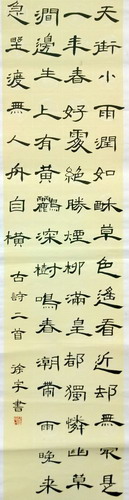 天街小雨潤如酥草色遙看近却無最是
一年春好處絕勝煙柳滿皇都獨憐幽草
澗邊生上有黃鸝深樹鳴春潮帶雨晚來
急野渡無人舟自橫
古詩二首 徐 書